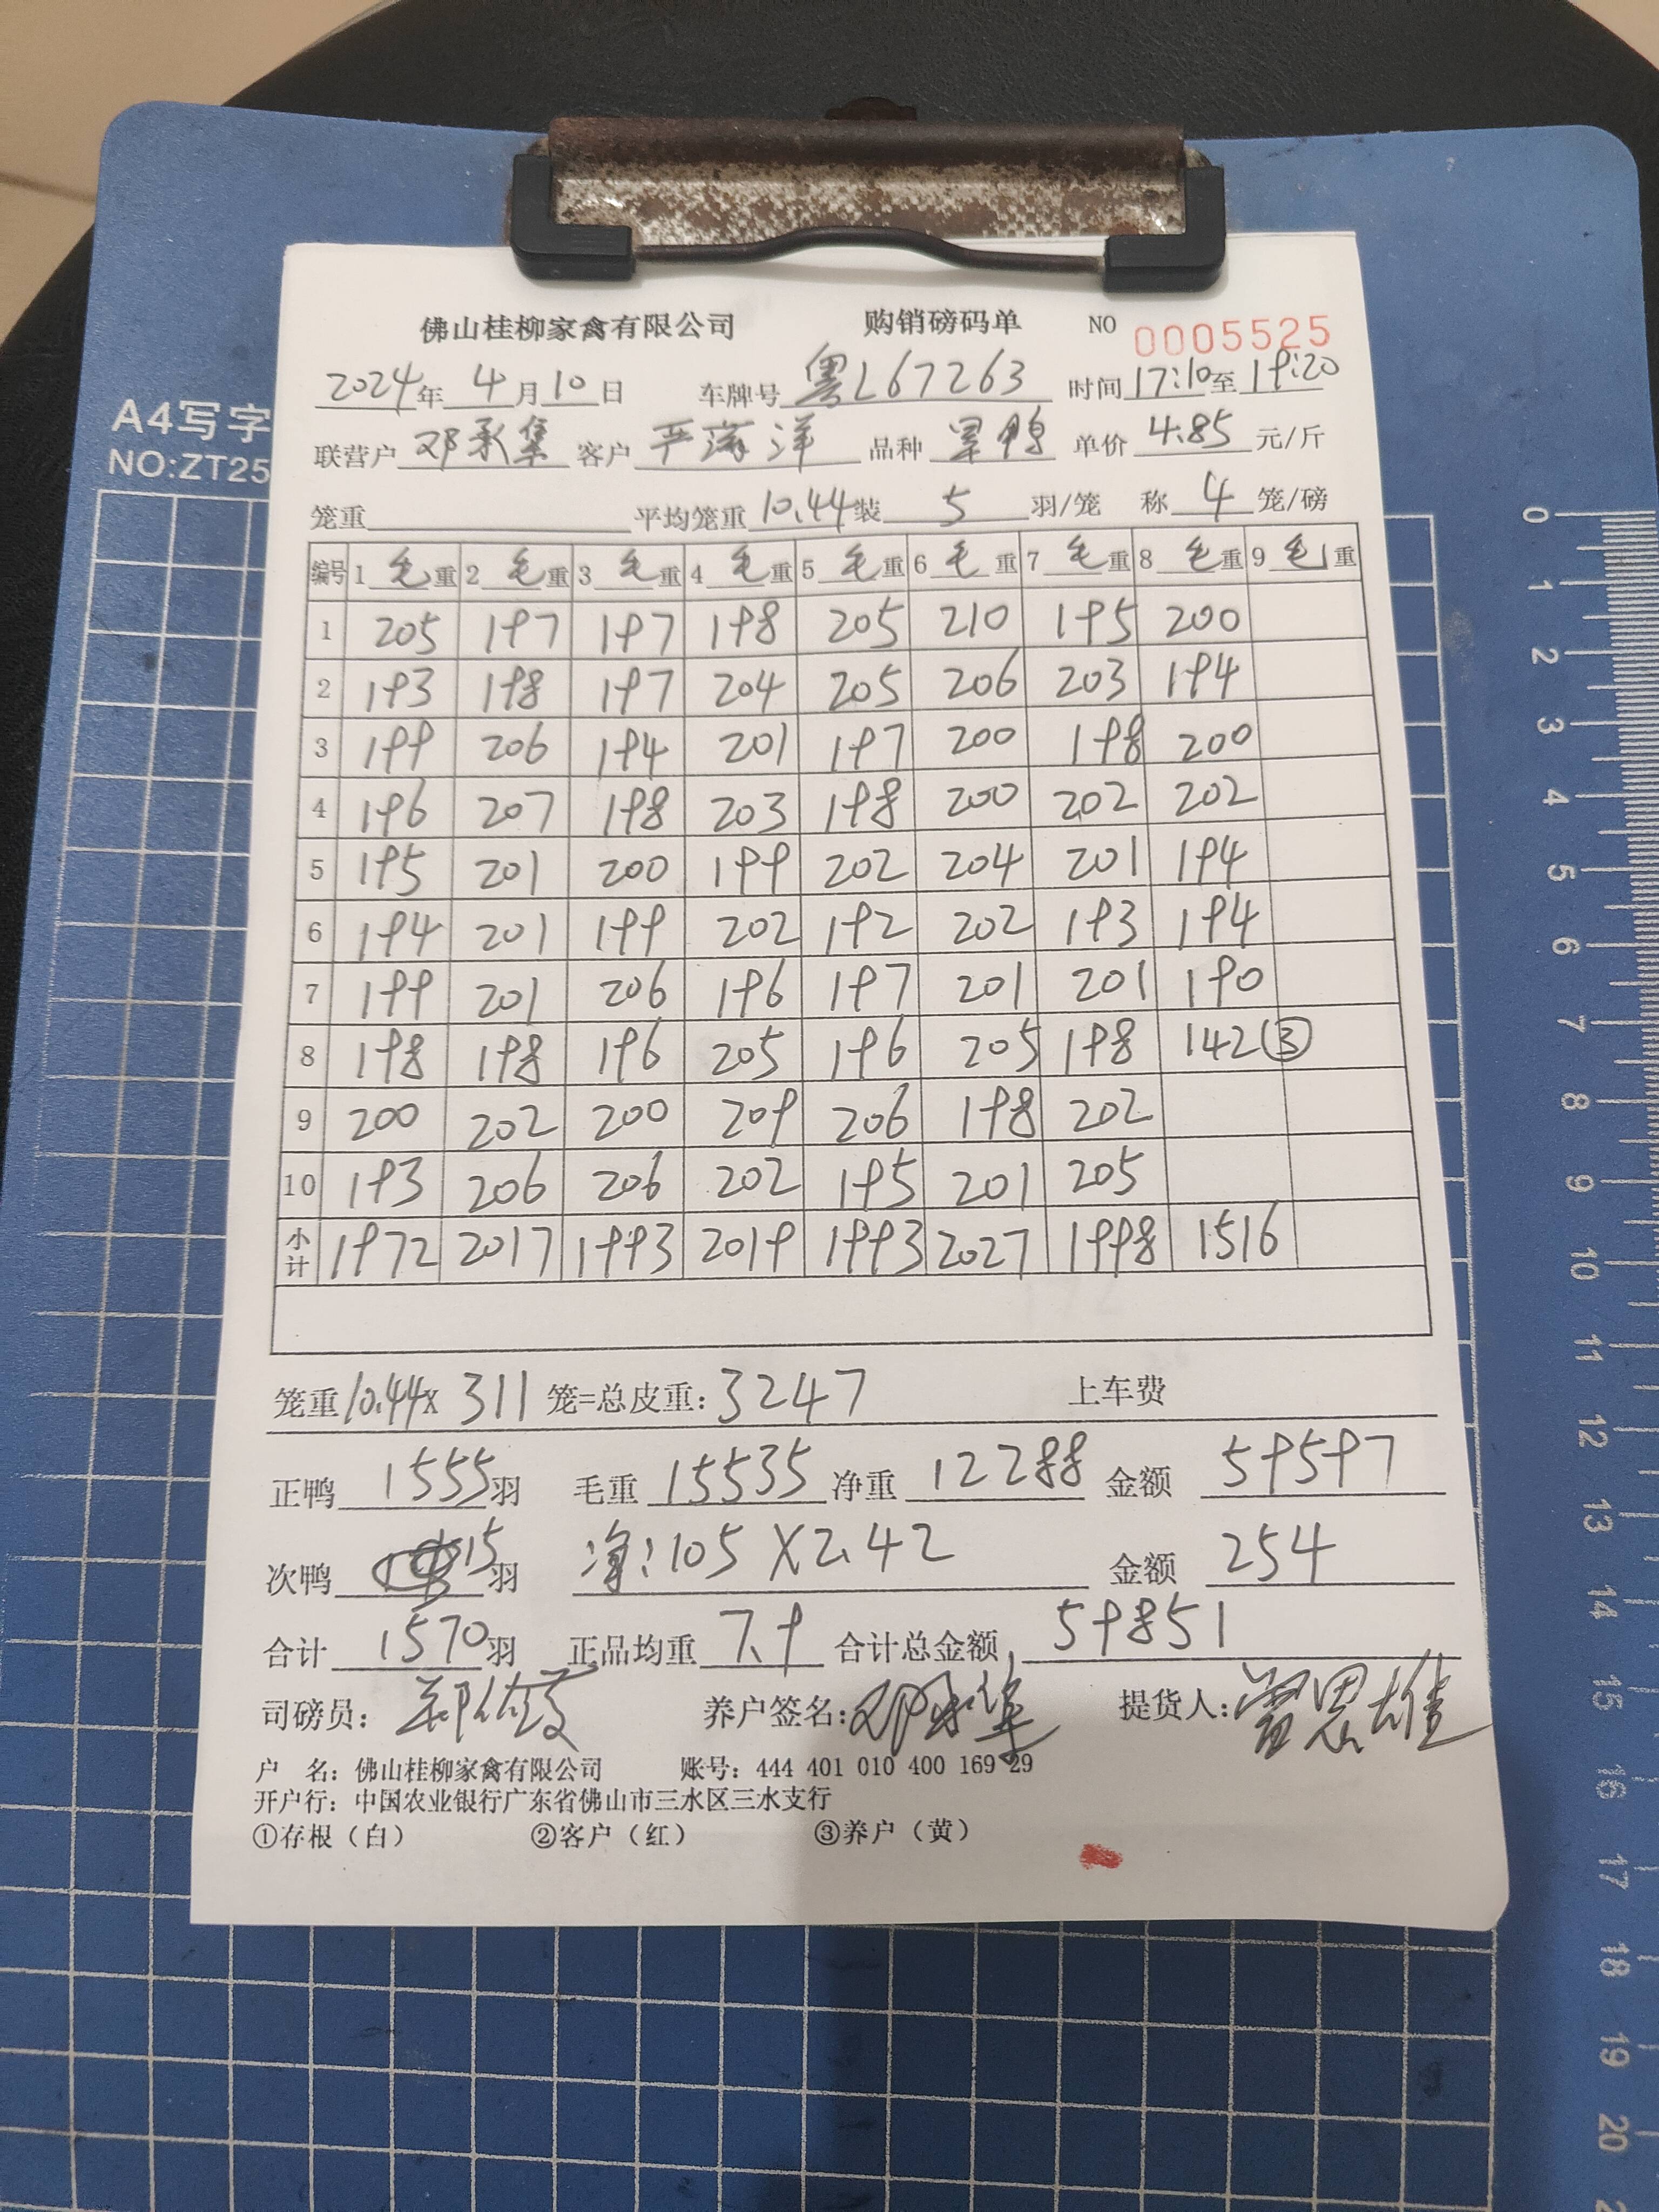 佛山桂柳家禽有限公司 购销磅码单 NO 0005525
2024年 4月10日 车牌号 粤L67263 时间17:10至19:20
A4写字
联营户 邓承集 客户 严海洋 品种 单价 4.85 元/斤
NO:ZT25
笼重 平均笼重10.44装 5 羽/笼 称 4 笼/磅
编号 1 毛重 2 毛重 3 毛重 4 毛重 5 毛重 6 毛重 7 毛重 8 毛重 9 毛重
1 205 197 197 198 205 210 195 200
2 193 198 197 204 205 206 203 194
3 199 206 194 201 197 200 198 200
4 196 207 198 203 198 200 202 202
5 195 201 200 199 202 204 201 194
6 194 201 199 202 192 202 193 194
7 199 201 206 196 197 201 201 190
8 198 198 196 205 196 205 198 142③
9 200 202 200 209 206 198 202
10 193 206 206 202 195 201 205
小计 1972 2017 1993 2019 1993 2027 1998 1516
笼重10.44x 311 笼=总皮重:3247 上车费
正鸭 1555羽 毛重 15535 净重 12288 金额 59597
次鸭 15羽 净:105 X2.42 金额 254
合计 1570羽 正品均重 7.9 合计总金额 59851
司磅员: 养户签名: 提货人: 曾思雄
户 名: 佛山桂柳家禽有限公司 账号: 444 401 010 400 169 29
开户行: 中国农业银行广东省佛山市三水区三水支行
①存根(白) ②客户(红) ③养户(黄)
0
1
2
3
4
5
6
7
8
9
10
11
12
13
14
15
16
17
18
19
20